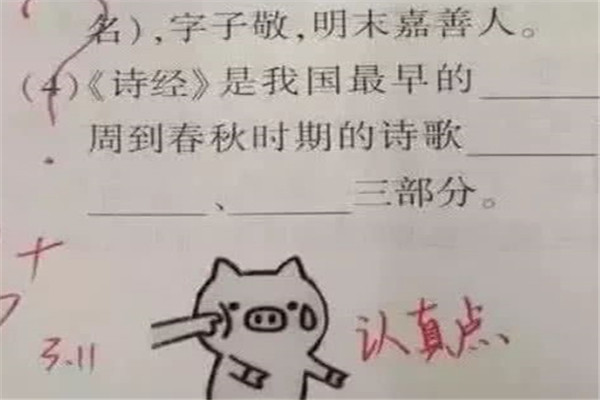 名),字子敬,明末嘉善人。
(4)《诗经》是我国最早的______
周到春秋时期的诗歌______
______、______三部分。
3.11
认真点、